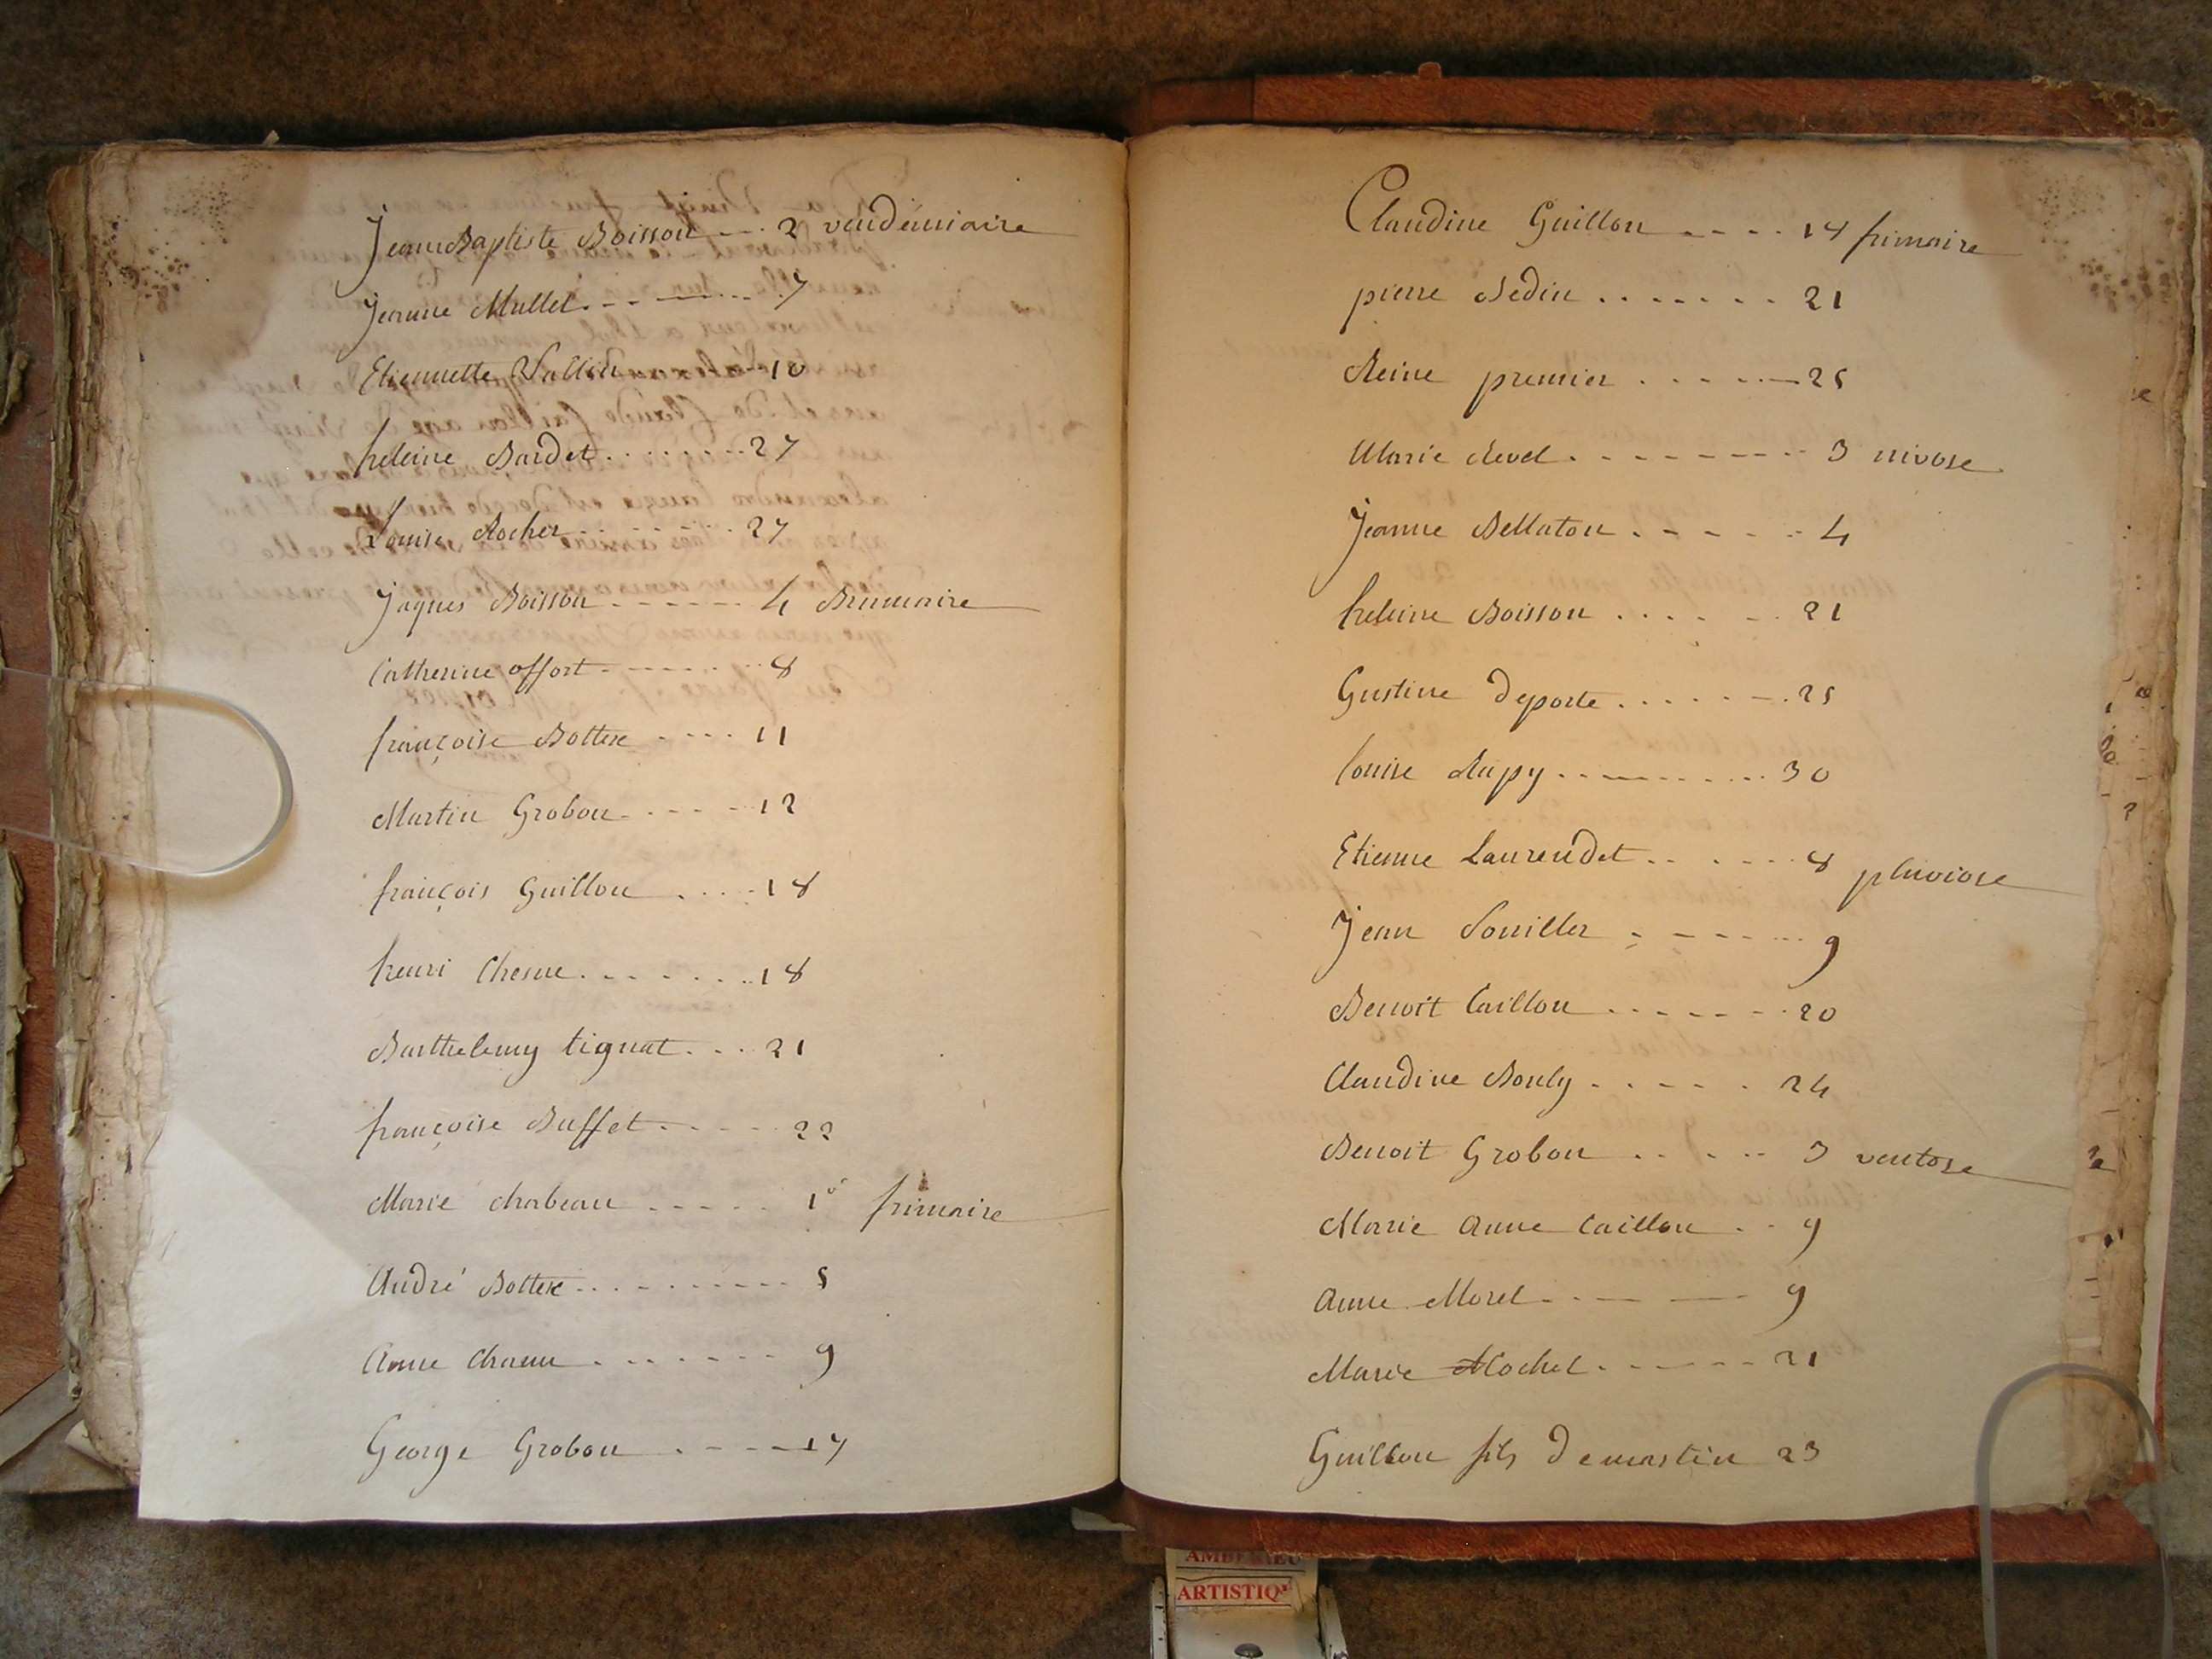 Jean Baptiste Boisson --- 2 vendemiaire
Jeanne Mullet ------- 7
Etiennette Vallin 10
heleine Bardet ........ 27
Louise Rocher ........ 27
Jaques Boisson ------ 4 Brumaire
Catherine offort ------- 8
françoise Bottex ---- 11
Martin Grobon ----- 12
françois Guillon .... 18
henri Chesne ....... 18
Barthelemy tignat ... 21
françoise Buffet ..... 22
Marie chabeau ----- 1er frimaire
André Bottex ......... 5
Anne ....... 9
George Grobon .---- 17
Claudine Guillon ---- 14 frimaire
pierre Bedin ....... 21
Reine premier ..... 25
Marie Revel --------- 3 nivose
Jeanne Bellaton ------ 4
heleine Boisson ...... 21
Gustine deporte ...... 25
louise Rapy .......... 30
Etienne Laurendet ....... 8 pluviose
Jean Souiller ------ 9
Benoit Caillon ------- 20
Claudine Bouly ..... 24
Benoit Grobon ..... 3 ventose
Marie Anne Caillon .. 9
Anne Morel ----- 9
Marie Mochet ------ 21
Guillon fils de martin 23
AMBERIEU
ARTISTIQ